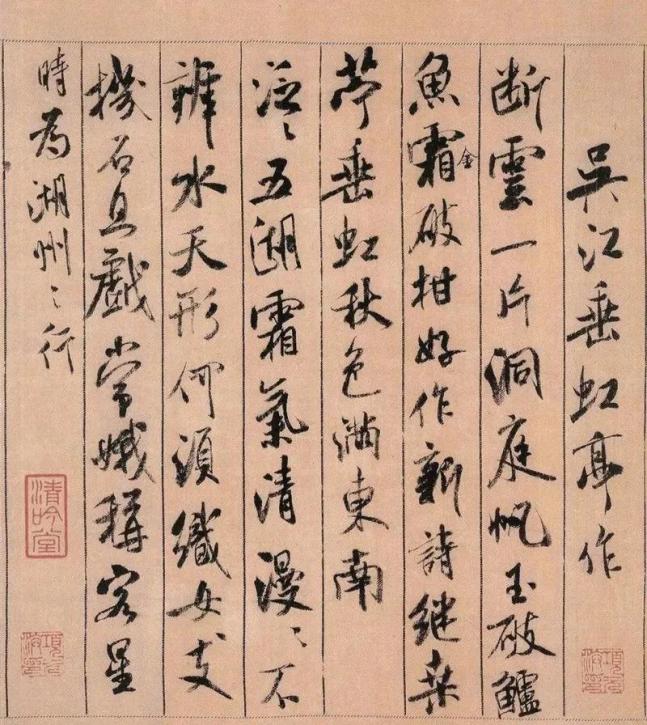 吳江垂虹亭作
断雲一片洞庭帆玉破鱸
魚霜金破柑好作新詩継桒
苧垂虹秋色滿東南
泛〻五湖霜氣清漫〻不
辨水天形何須織女支
機石且戲常娥稱客星
時為湖州〻行
清吟堂